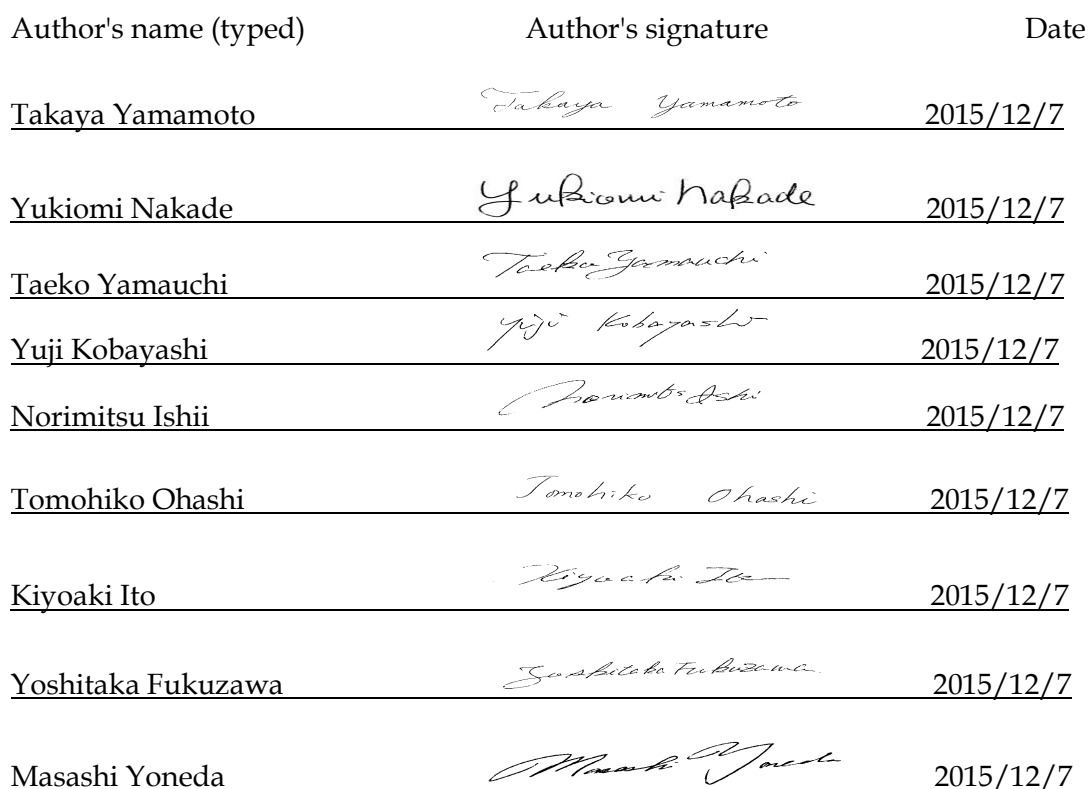 Author's name (typed) Author's signature Date
Takaya Yamamoto Takaya Yamamoto 2015/12/7
Yukiomi Nakade Yukiomi Nakade 2015/12/7
Taeko Yamauchi Taeko Yamauchi 2015/12/7
Yuji Kobayashi Yuji Kobayashi 2015/12/7
Norimitsu Ishii Norimitsu Ishii 2015/12/7
Tomohiko Ohashi Tomohiko Ohashi 2015/12/7
Kiyoaki Ito Kiyoaki Ito 2015/12/7
Yoshitaka Fukuzawa Yoshitaka Fukuzawa 2015/12/7
Masashi Yoneda Masashi Yoneda 2015/12/7